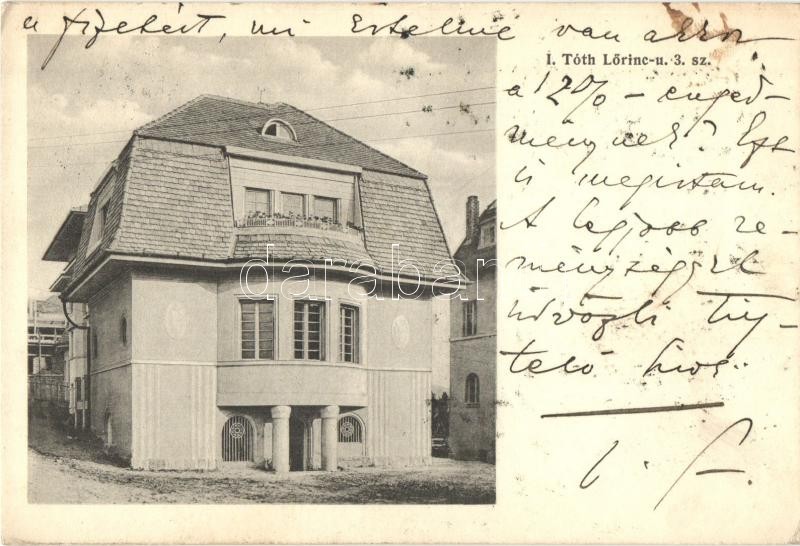 a fizetést, mi értelme van akkor
I. Tóth Lőrinc-u. 3. sz.
a 12% - enged-
ménynek? Ezt
is megirtam.
A legjobb re-
ménységgel
üdvözli tisz-
telő hive
darabanth